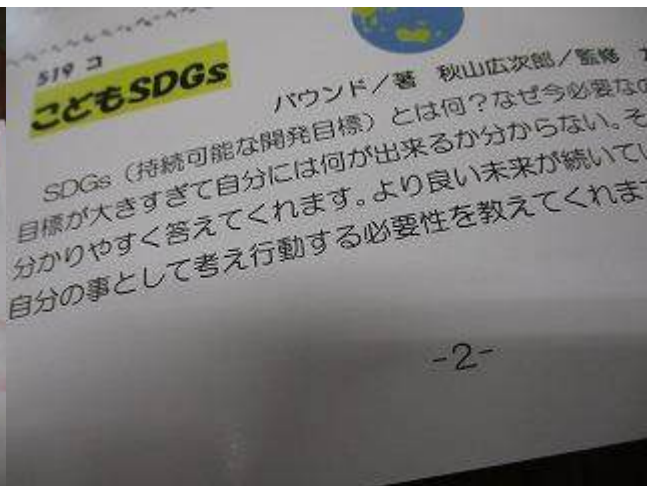 519 コ
こどもSDGs
バウンド／著 秋山広次郎／監修
SDGs（持続可能な開発目標）とは何？なぜ今必要なの
目標が大きすぎて自分には何が出来るか分からない。そ
分かりやすく答えてくれます。より良い未来が続いてい
自分の事として考え行動する必要性を教えてくれま
-2-